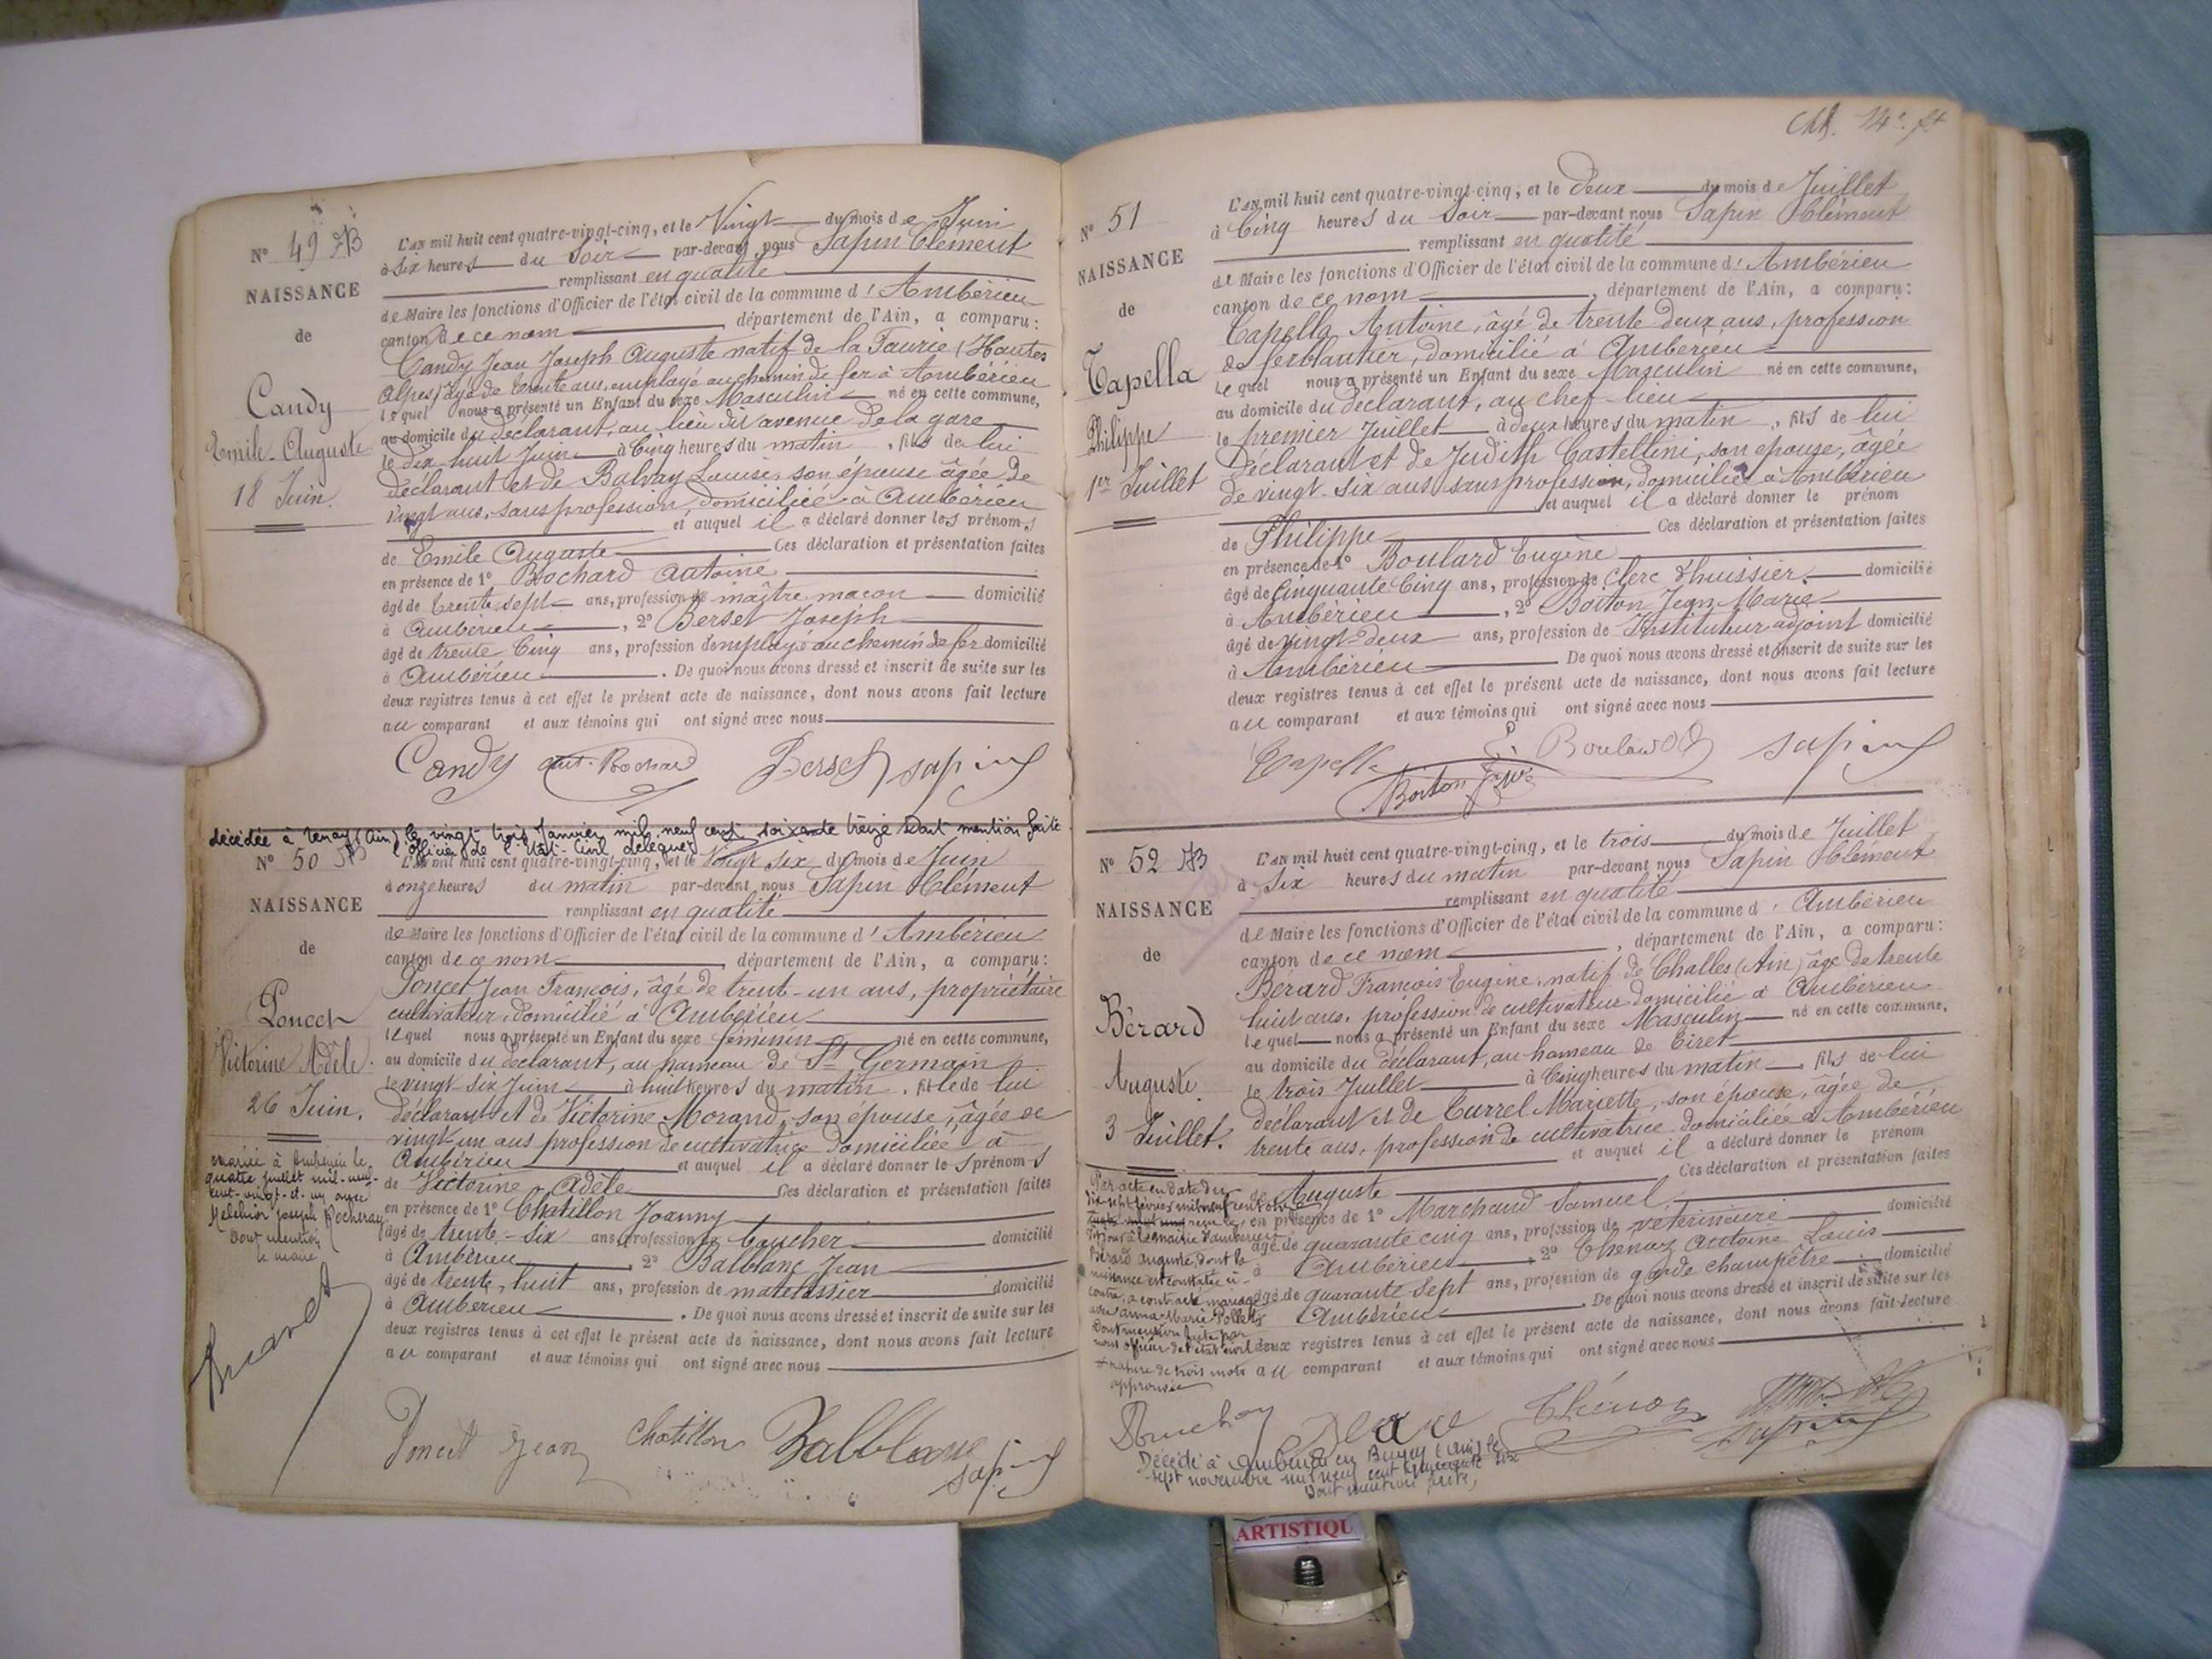 Nº 49
NAISSANCE
de
Candy
Emile-Auguste
18 Juin.
L'AN mil huit cent quatre-vingt-cinq, et le Vingt du mois de Juin
à six heures du soir par-devant nous Sapin Clément
remplissant en qualité
de Maire les fonctions d'Officier de l'état civil de la commune d'Ambérieu
canton de ce nom, département de l'Ain, a comparu:
Candy Jean Joseph Auguste natif de la Faurie (Hautes
Alpes) âgé de trente ans, employé au chemin de fer à Ambérieu
lequel nous a présenté un Enfant du sexe Masculin né en cette commune,
au domicile du déclarant, au lieu dit avenue de la gare
le dix-huit Juin à Cinq heures du matin, fils de lui
déclarant et de Balvay Louise, son épouse âgée de
vingt ans, sans profession, domiciliée à Ambérieu
et auquel il a déclaré donner les prénoms
de Emile Auguste Ces déclaration et présentation faites
en présence de 1º Bochard Antoine
âgé de trente sept ans, profession de maître maçon domicilié
à Ambérieu, 2º Berset Joseph
âgé de trente Cinq ans, profession d'employé au chemin de fer domicilié
à Ambérieu. De quoi nous avons dressé et inscrit de suite sur les
deux registres tenus à cet effet le présent acte de naissance, dont nous avons fait lecture
au comparant et aux témoins qui ont signé avec nous
Candy Ant. Bochard Berset Sapin
décédée à Tenay (Ain) le vingt trois Janvier mil neuf cent soixante treize dont mention faite
l'Officier de l'Etat-Civil délégué
Nº 50
NAISSANCE
de
Poncet
Victorine Adèle.
26 Juin.
L'AN mil huit cent quatre-vingt-cinq, et le Vingt six du mois de Juin
à onze heures du matin par-devant nous Sapin Clément
remplissant en qualité
de Maire les fonctions d'Officier de l'état civil de la commune d'Ambérieu
canton de ce nom, département de l'Ain, a comparu:
Poncet Jean François, âgé de trente-un ans, propriétaire
cultivateur, domicilié à Ambérieu
lequel nous a présenté un Enfant du sexe féminin né en cette commune,
au domicile du déclarant, au hameau de St Germain
le vingt six Juin à huit heures du matin, fille de lui
déclarant et de Victorine Morand, son épouse, âgée de
vingt-un ans profession de cultivatrice domiciliée à
Ambérieu et auquel il a déclaré donner les prénoms
de Victorine Adèle Ces déclaration et présentation faites
en présence de 1º Chatillon Joanny
âgé de trente-six ans, profession de boucher domicilié
à Ambérieu, 2º Balblanc Jean
âgé de trente huit ans, profession de matelassier domicilié
à Ambérieu. De quoi nous avons dressé et inscrit de suite sur les
deux registres tenus à cet effet le présent acte de naissance, dont nous avons fait lecture
au comparant et aux témoins qui ont signé avec nous
mariée à Ambérieu le
quatre juillet mil-neuf-
cent-vingt-et-un avec
Melchior Joseph Rocheray
Dont mention
le maire
Poncet Jean Chatillon Balblanc Sapin
Nº 51
NAISSANCE
de
Capella
Philippe
1er Juillet
L'AN mil huit cent quatre-vingt-cinq, et le Deux du mois de Juillet
à Cinq heures du soir par-devant nous Sapin Clément
remplissant en qualité
de Maire les fonctions d'Officier de l'état civil de la commune d'Ambérieu
canton de ce nom, département de l'Ain, a comparu:
Capella Antoine, âgé de trente deux ans, profession
de ferblantier, domicilié à Ambérieu
lequel nous a présenté un Enfant du sexe Masculin né en cette commune,
au domicile du déclarant, au chef-lieu
le premier Juillet à deux heures du matin, fils de lui
Déclarant et de Judith Castellini, son épouse, âgée
de vingt-six ans, sans profession, domiciliée à Ambérieu
et auquel il a déclaré donner le prénom
de Philippe Ces déclaration et présentation faites
en présence de 1º Boulard Eugène
âgé de Cinquante Cinq ans, profession de Clerc d'huissier. domicilié
à Ambérieu, 2º Boiton Jean Marie
âgé de vingt-deux ans, profession de Instituteur adjoint domicilié
à Ambérieu De quoi nous avons dressé et inscrit de suite sur les
deux registres tenus à cet effet le présent acte de naissance, dont nous avons fait lecture
au comparant et aux témoins qui ont signé avec nous
Capella E. Boulard Sapin
Boiton
Nº 52
NAISSANCE
de
Bérard
Auguste.
3 Juillet.
L'AN mil huit cent quatre-vingt-cinq, et le trois du mois de Juillet
à Six heures du matin par-devant nous Sapin Clément
remplissant en qualité
de Maire les fonctions d'Officier de l'état civil de la commune d'Ambérieu
canton de ce nom, département de l'Ain, a comparu:
Bérard François Eugène, natif de Challes (Ain) âgé de trente
huit ans, profession de cultivateur domicilié à Ambérieu
lequel nous a présenté un Enfant du sexe Masculin né en cette commune,
au domicile du déclarant, au hameau de Tiret
le trois Juillet à Cinq heures du matin, fils de lui
déclarant et de Currel Mariette, son épouse, âgée de
trente ans, profession de cultivatrice domiciliée à Ambérieu
et auquel il a déclaré donner le prénom
de Auguste Ces déclaration et présentation faites
en présence de 1º Marchand Samuel
âgé de quarante cinq ans, profession de vétérinaire domicilié
à Ambérieu, 2º Chenoz Antoine Louis
âgé de quarante sept ans, profession de garde champêtre domicilié
à Ambérieu. De quoi nous avons dressé et inscrit de suite sur les
deux registres tenus à cet effet le présent acte de naissance, dont nous avons fait lecture
au comparant et aux témoins qui ont signé avec nous
Par acte en date du
Bérard Auguste, dont la
naissance est constatée ci-
contre, a contracté mariage
avec Anna-Marie
Dont mention faite par
nous officier de l'état civil
rature de trois mots
approuvée
Chénoz
Sapin
Décédé à Ambérieu en Bugey (Ain) le
sept novembre mil neuf cent
Dont mention faite,
ARTISTIQU